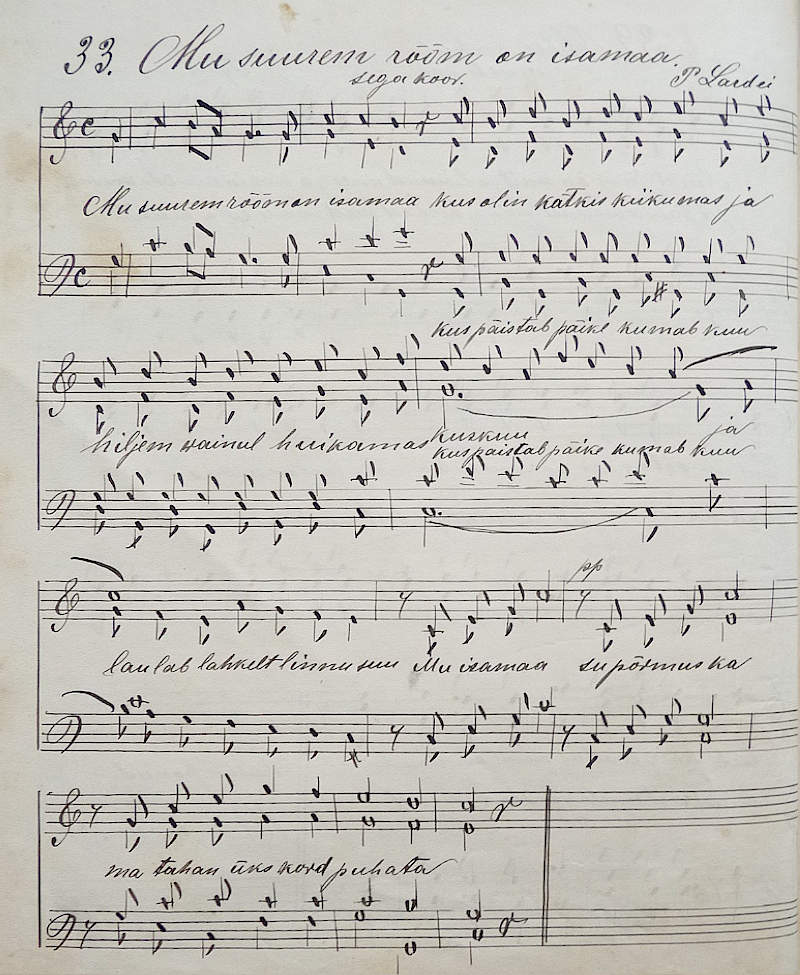 33. Mu suurem rõõm on isamaa.
sega koor.
P Lardei
Mu suurem rõõm on isamaa kus olin kätkis kiikumas ja
kus päistab päike kumab kuu
hiljem wainul huikamas kus kuu ja
kus paistab päike kumab kuu
pp
laulab lahkelt linnu suu Mu isamaa su põrmus ka
ma tahan üks kord puhata